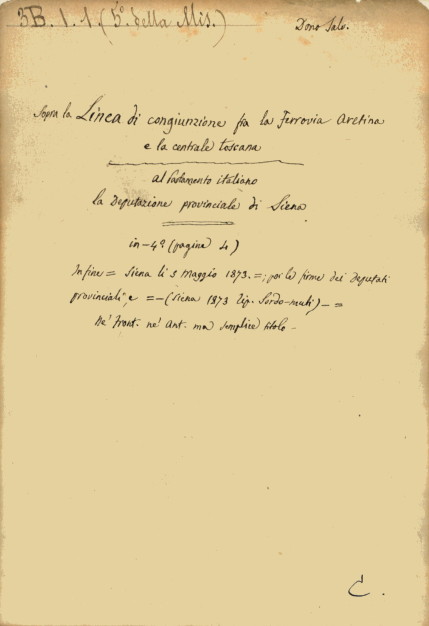 3B. 1. 1 (5° della Mis.)
Dono Salv.
Sopra la Linea di congiunzione fra la Ferrovia Aretina
e la centrale toscana
al Parlamento italiano
la Deputazione provinciale di Siena
in-4° (pagine 4)
Infine = Siena li 3 Maggio 1873. =; poi le firme dei Deputati
provinciali, e = - (Siena 1873 Tip. Sordo-muti) - =
Ne' front. ne' ant. ma semplice titolo -
C.